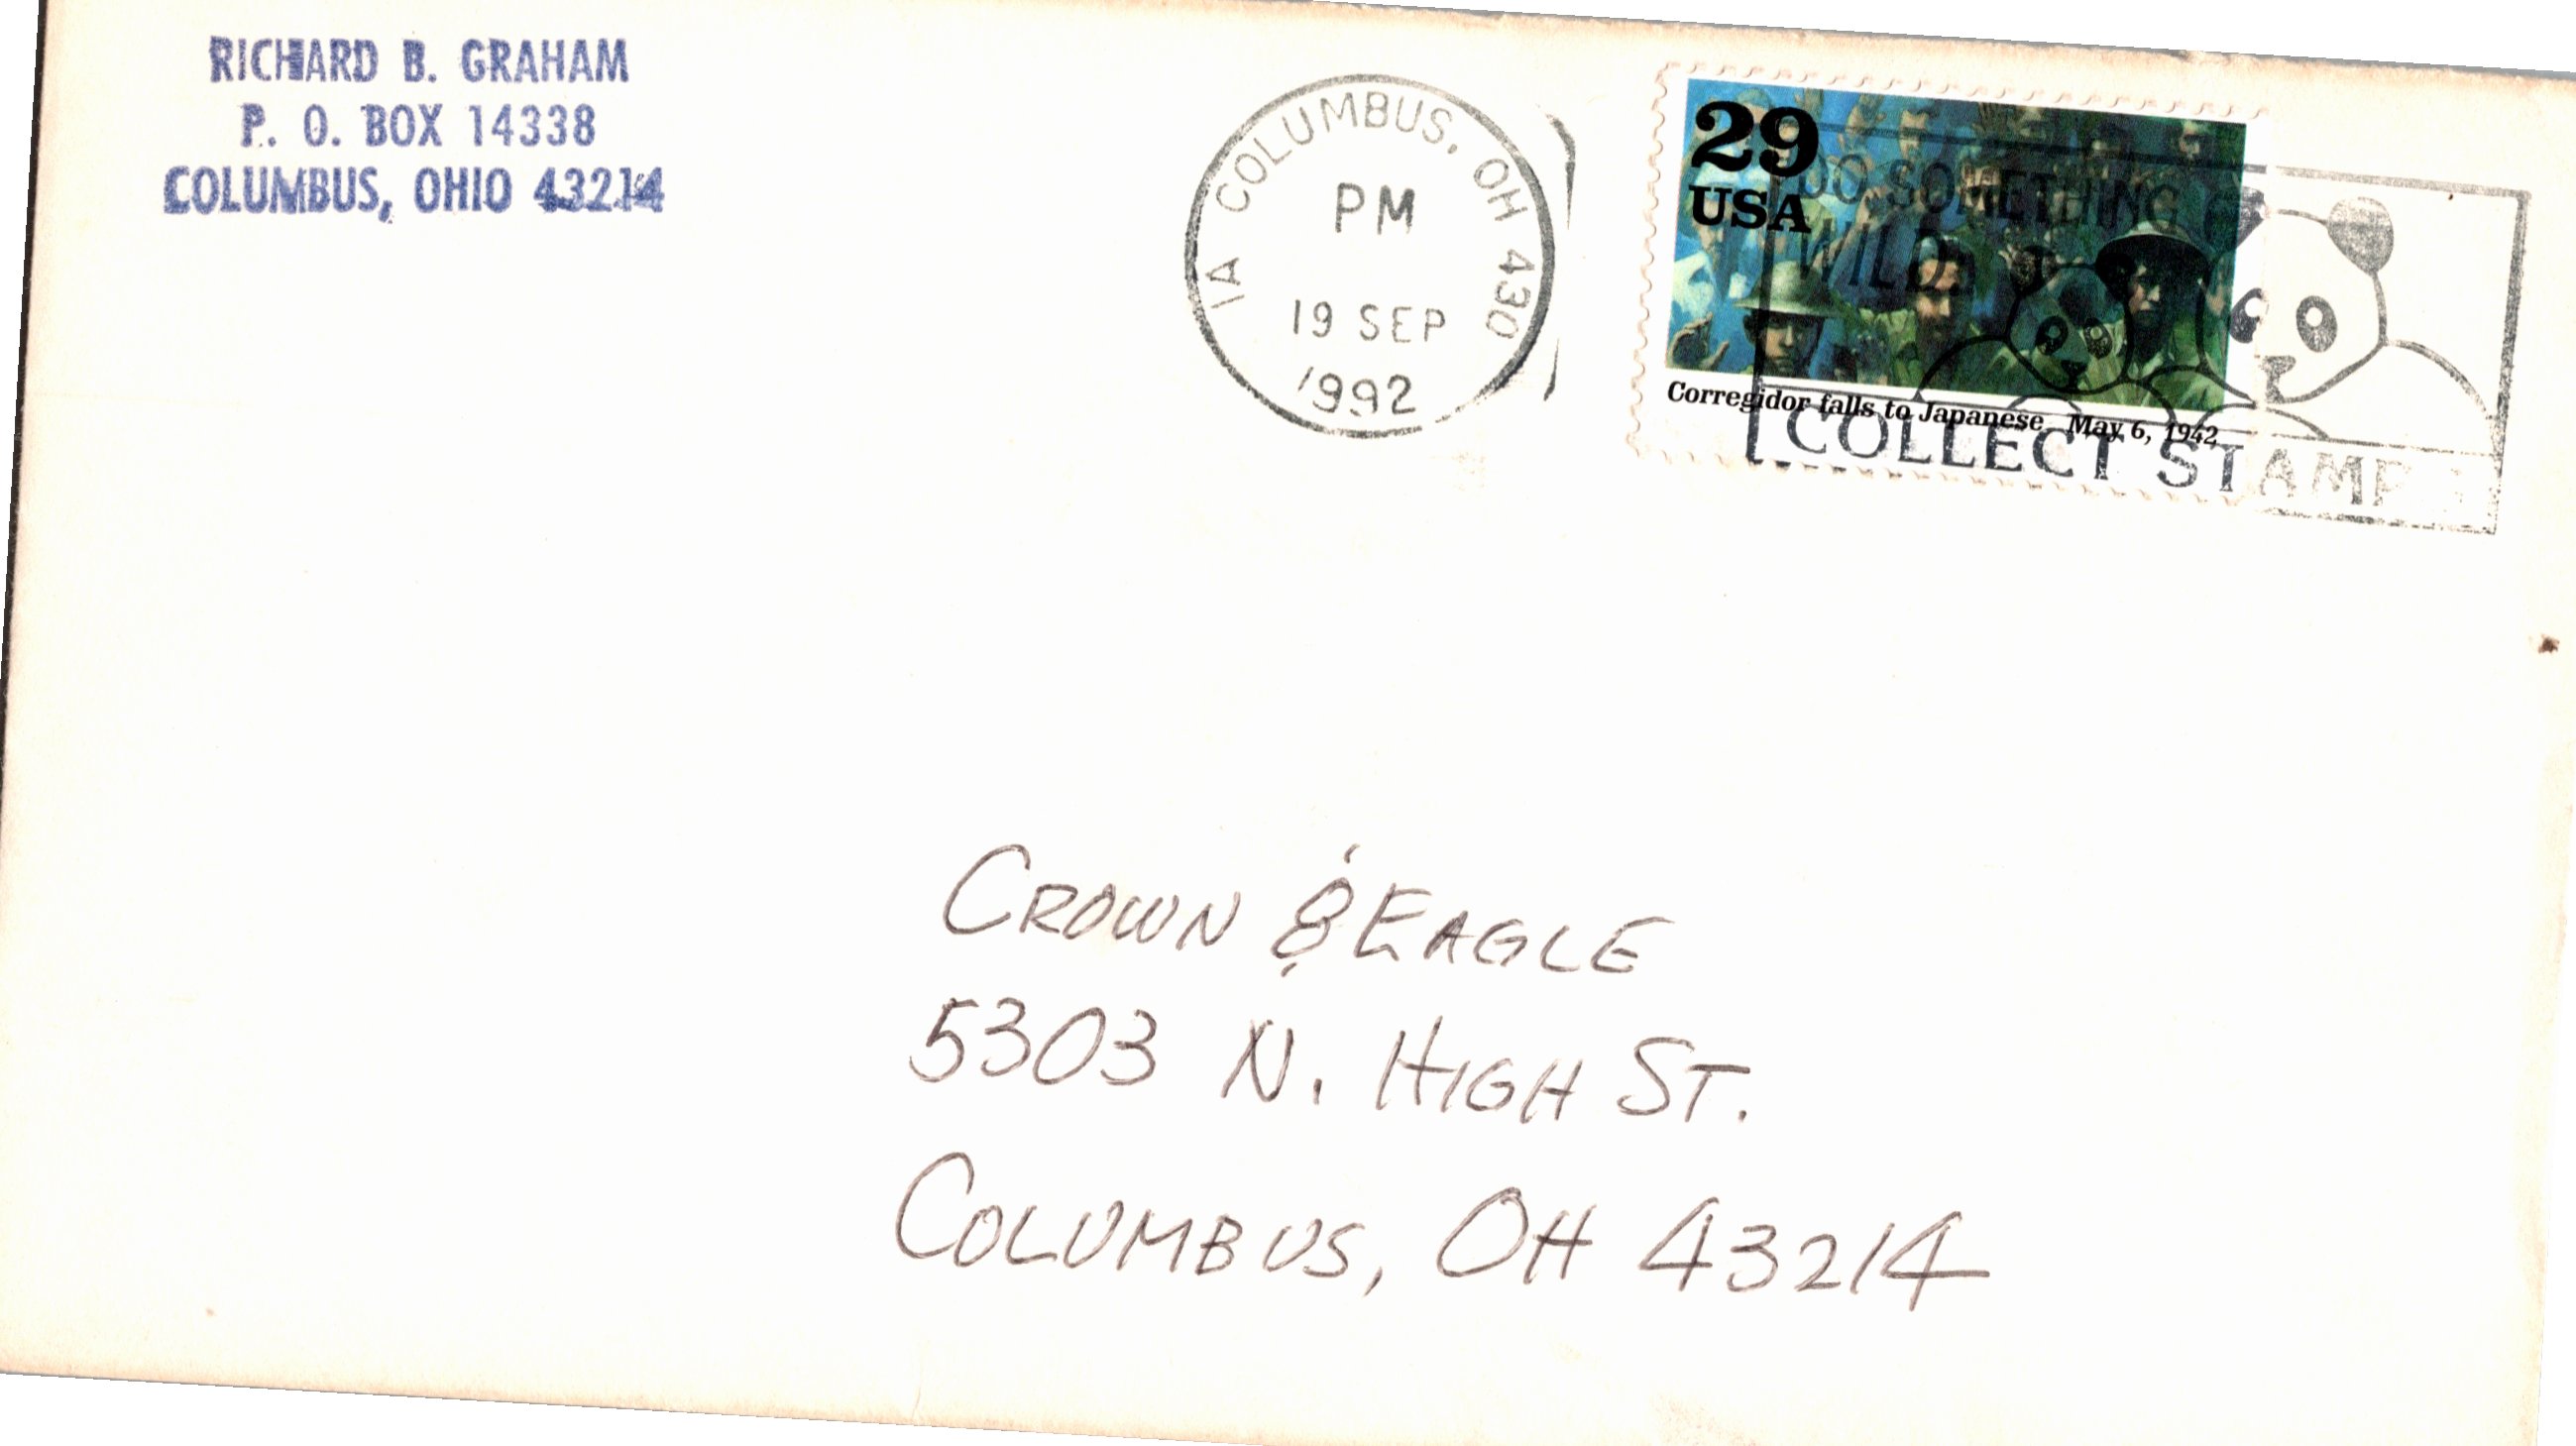 RICHARD B. GRAHAM
P. O. BOX 14338
COLUMBUS, OHIO 43214
1A COLUMBUS, OH 430
PM
19 SEP
1992
29
USA
Corregidor falls to Japanese, May 6, 1942
DO SOMETHING
WILD
COLLECT STAMPS
CROWN & EAGLE
5303 N. HIGH ST.
COLUMBUS, OH 43214